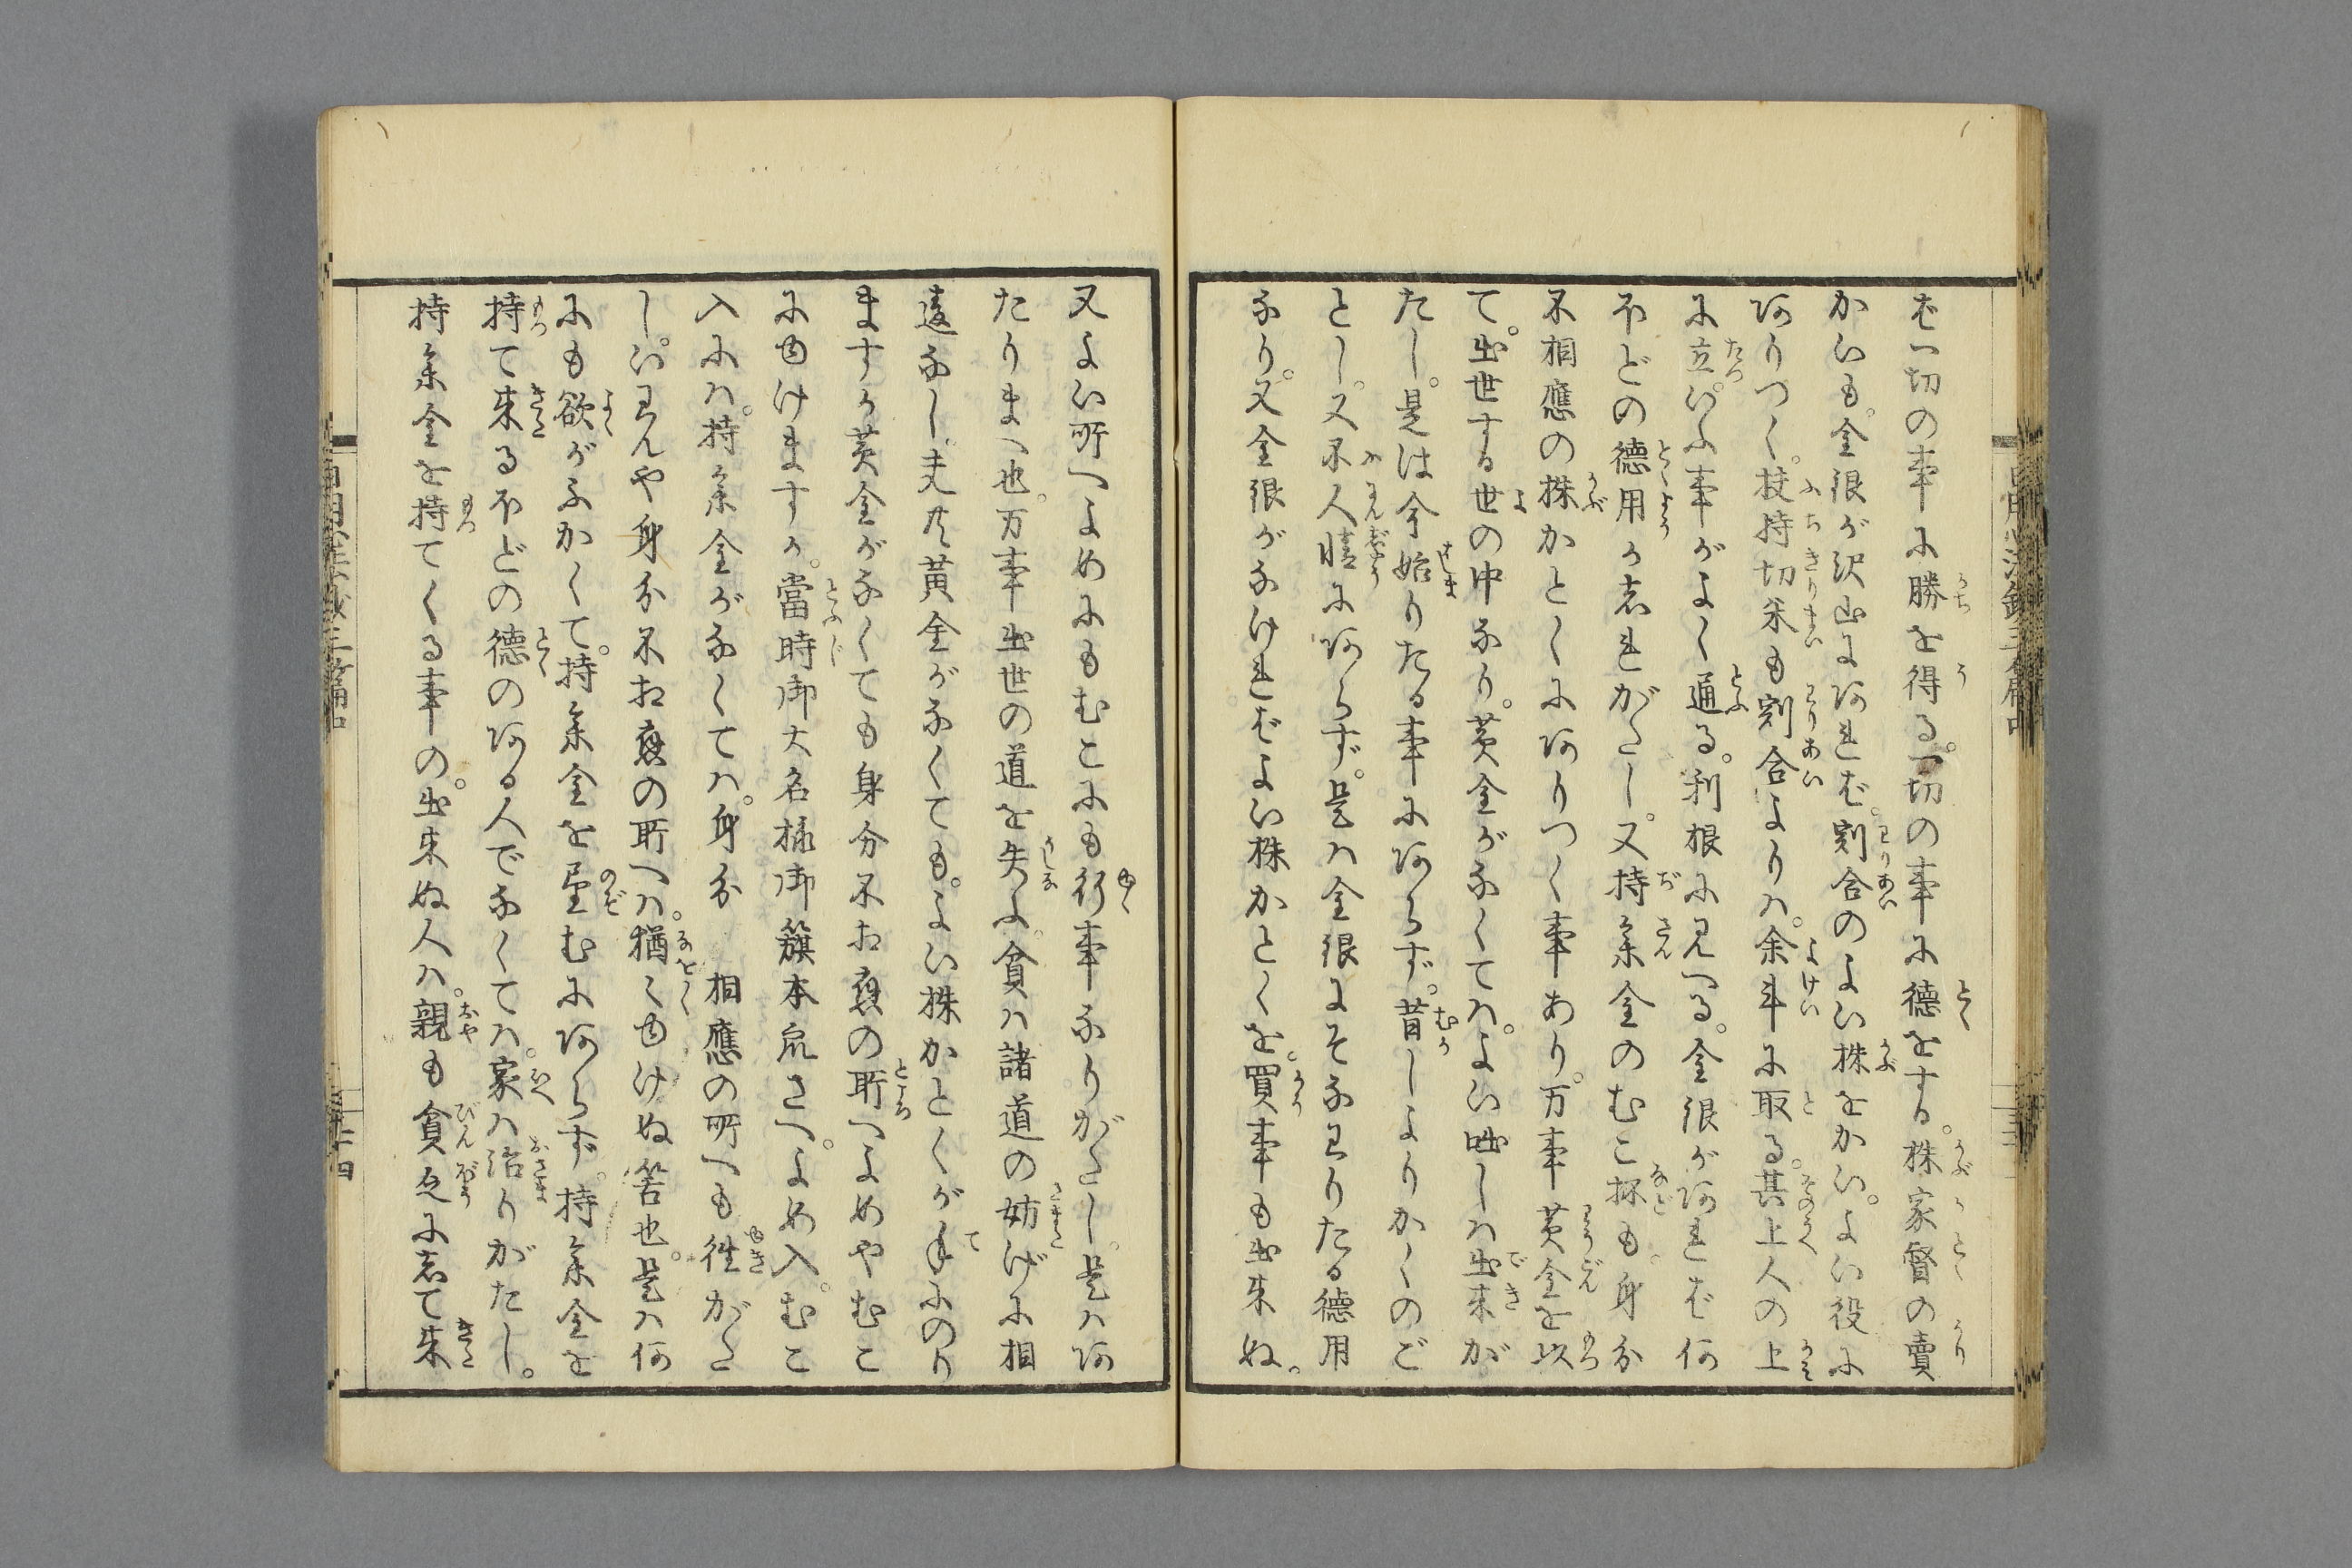 ば一切の事に勝を得る。一切の事に徳をする。株家督の賣
かいも。金銀が沢山にあれば。割合のよい株をかい。よい役に
ありつく。扶持切米も割合よりハ。余斗に取る。其上人の上
に立。いふ事がよく通る。利根に見へる。金銀があれば何
ほどの徳用か知れがたし。又持參金のむこ抔も。身分
不相應の株かとくにありつく事あり。万事黄金を以
て。出世する世の中なり。黄金がなくてハ。よい咄しハ出来が
たし。是は今始りたる事にあらず。昔しよりかくのご
とし。又不人情にあらず。是ハ金銀にそなわりたる徳用
なり。又金銀がなければよい株かとくを。買事も出来ぬ。
又よい所へよめにもむこにも行事なりがたし。是ハあ
たりまへ也。万事出世の道を失ふ。貧ハ諸道の妨げに相
違なし。夫共黄金がなくても。よい株かとくが手にのり
ますか黄金がなくても身分不相應の所へよめやむこ
にゆけますか。當時御大名様御籏本衆さへ。よめ入。むこ
入にハ。持參金がなくてハ。身分 相應の所へも往がた
し。いわんや身分不相應の所へハ。猶〻ゆけぬ筈也。是ハ何
にも欲がふかくて。持參金を望むにあらず。持參金を
持て来るほどの徳のある人でなくてハ。家ハ治りがたし。
持參金を持てくる事の。出来ぬ人ハ。親も貪乏にして来